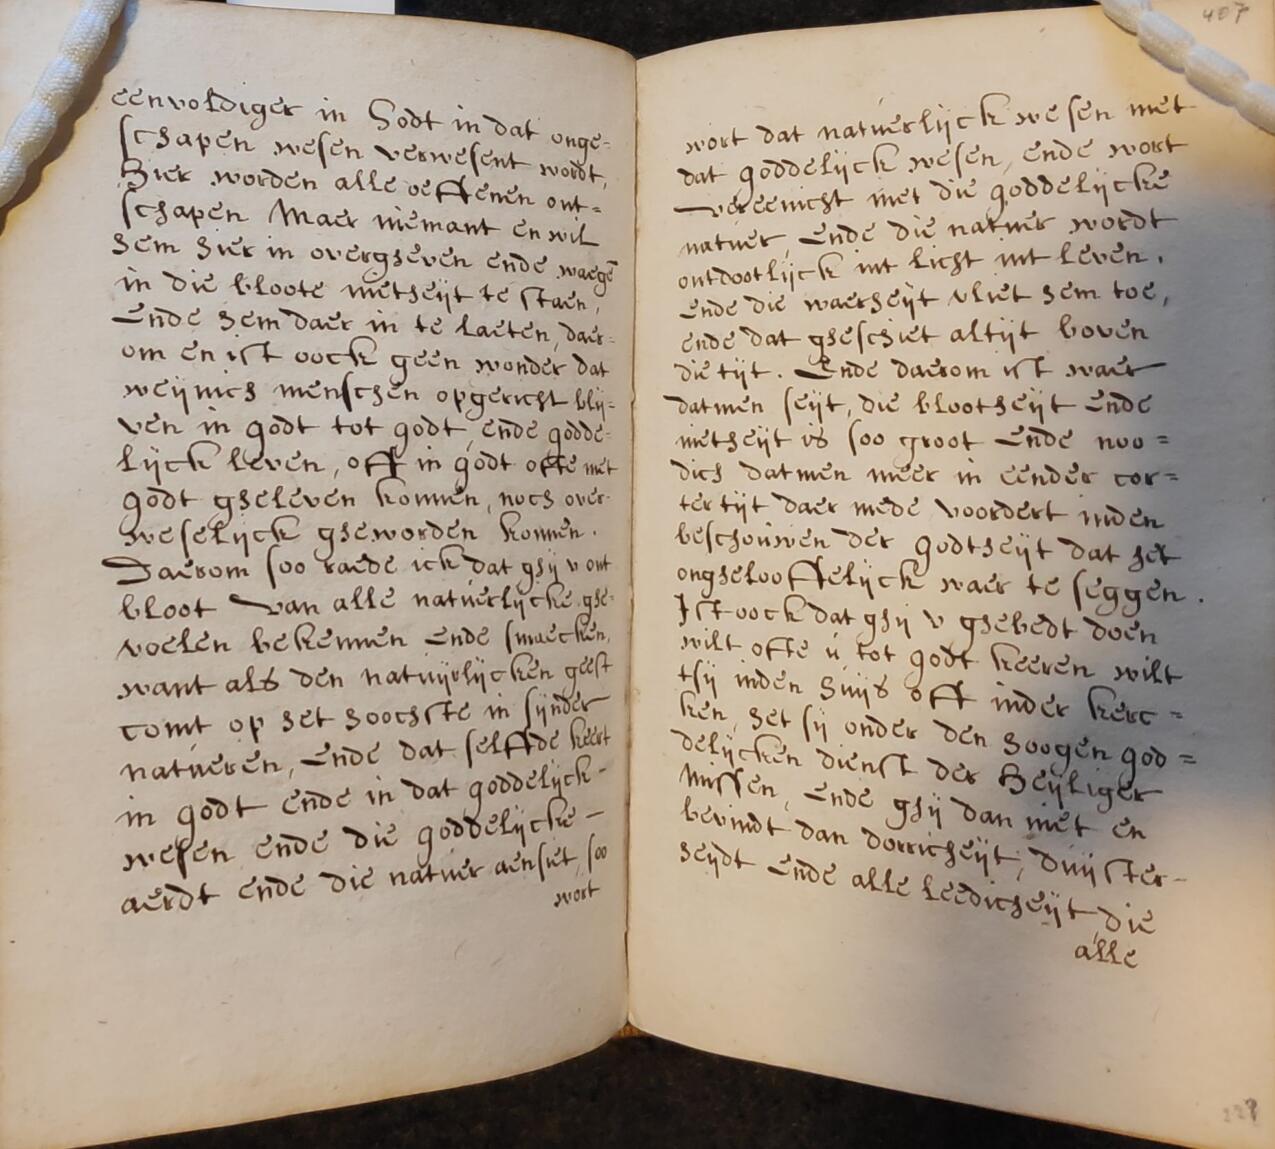 eenvoldiger in Godt in dat onge-
schapen wesen verwesent wordt,
Hier worden alle oeffenen ont=
schapen Maer niemant en wil
hem hier in overgheven ende waegē
in die bloote nietheijt te staen,
Ende hem daer in te laeten, daer-
om en ist oock geen wonder dat
weijnich menschen opgericht blij-
ven in godt tot godt, ende godde-
lijck leven, off in godt ofte met
godt gheleven konnen, noch over-
weselijck gheworden konnen.
Daerom soo raede ick dat ghij v ont
bloot van alle natuerlijcke ghe-
voelen bekennen ende smaecken,
want als den natuijrlijcken geest
comt op het hoochste in sijnder
natueren, ende dat selffde keert
in godt ende in dat goddelijck-
wesen ende die goddelijcke-
aerdt ende die natuer aensiet, soo
wort
407
wort dat natuerlijck wesen met
dat goddelijck wesen, ende wort
vereenicht met die goddelijcke
natuer, Ende die natuer wordt
ontdootlijck int licht int leven,
Ende die waerheijt vliet hem toe,
ende dat gheschiet altijt boven
die tijt. Ende daerom ist waer
datmen seijt, die blootheijt Ende
nietheijt is soo groot Ende noo=
dich datmen meer in eender cor=
ter tijt daer mede voordert inden
beschouwen der godtheijt dat het
ongheloofflijck waer te seggen.
Ist oock dat ghij v ghebedt doen
wilt ofte ú tot godt keeren wilt
tsij inden huijs off inder kerc=
ken, het sij onder den hoogen god=
delijcken dienst der Heijliger
Missen, Ende ghij dan niet en
bevindt dan dorricheijt, duijster-
heijdt Ende alle leedicheijt, die
alle